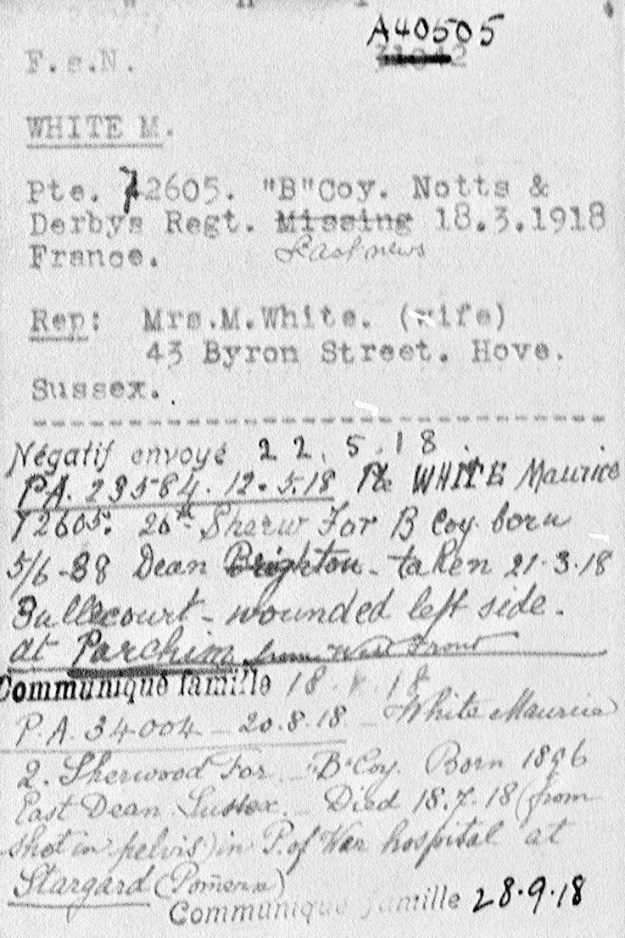 A40505
F.s.N.
WHITE M.
Pte. 72605. "B"Coy. Notts &
Derbys Regt. Missing 18.3.1918
France. Last news
Rep: Mrs.M.White. (wife)
43 Byron Street. Hove.
Sussex.
Négatif envoyé 22.5.18.
P.A. 23584. 12.5.18 Pte WHITE Maurice
72605. 26th Sherw For B Coy born
5/6-88 Dean Brighton - taken 21.3.18
Bullecourt - wounded left side -
at Parchim from West Front
Communiqué famille 18. 18
P.A. 34004 - 20.8.18 - White Maurice
2. Sherwood For. - "B" Coy. Born 1886
East Dean Sussex - Died 18.7.18 (from
shot in pelvis) in P. of War hospital at
Stargard (Pomern)
Communiqué famille 28.9.18